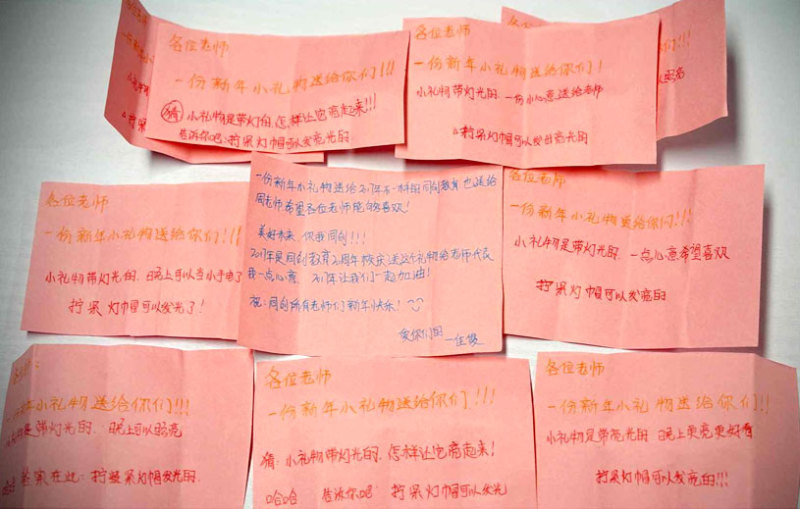 各位老师
一份新年小礼物送给你们!!!
猜 小礼物是带灯的,怎样让它亮起来!!!
告诉你吧:拧呆灯帽可以发亮的.
各位老师
一份新年小礼物送给你们!
小礼物带灯光的.一份小心意送给老师
拧呆灯帽可以发光的
们!!
各位老师
一份新年小礼物送给你们!!!
小礼物带灯光的.晚上可以当小手电了
拧呆灯帽可以发光了!
一份新年小礼物送给2017年不一样的同创教育也送给
周老师希望各位老师能够喜欢!
美好未来,你我同创!!!
2017年是同创教育2周年校庆送这个礼物给老师代表
我一点心意. 2017年让我们一起加油!
祝:同创所有老师们新年快乐!
爱你们的
各位老师
一份新年小礼物送给你们!!!
小礼物是带灯光的.一点心意希望喜欢
拧呆灯帽可以发亮的
年小礼物送给你们!!!
是带灯光的.晚上可以照亮
答案在此:拧呆灯帽发光的.
各位老师
一份新年小礼物送给你们!!!
猜:小礼物带灯光的.怎样让它亮起来!
哈哈 告诉你吧:拧呆灯帽可以发光
各位老师
一份新年小礼物送给你们!!!
小礼物是带亮光的 晚上更亮更好看
拧呆灯帽可以发亮的!!!